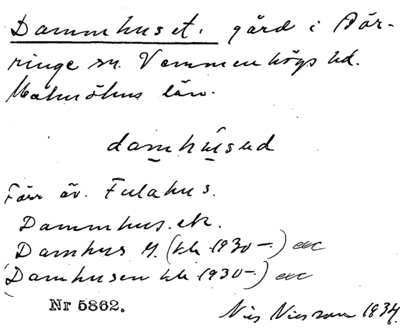 Dammhuset, gård i Bör-
ringe sn. Vemmenhögs hd.
Malmöhus län.
damhúsəd
Förr äv. Fulahus.
Dammhus. ek.
Damhus M. (kb 1930–)
(Damhusen kb 1930–)
Nr 5862.
Nils Nilsson 1934.